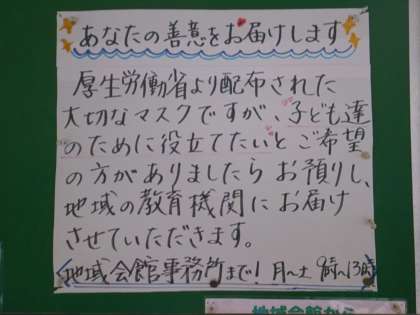 あなたの善意をお届けします
厚生労働省より配布された
大切なマスクですが、子ども達
のために役立てたいとご希望
の方がありましたらお預りし、
地域の教育機関にお届け
させていただきます。
地域会館事務所まで! 月~土 9時~13時
地域会館から